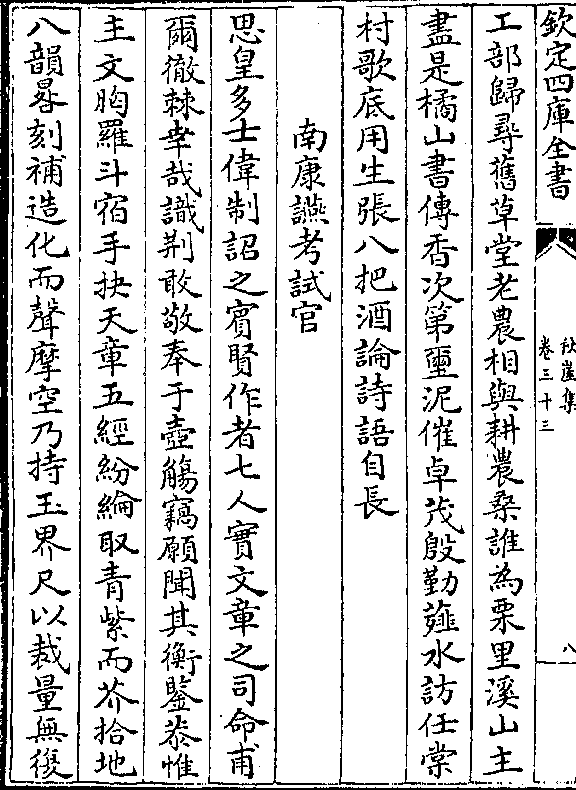 欽定四庫全書
秋崖集
卷三十三
八
工部歸尋舊草堂老農相與耕農桑誰為栗里溪山主
盡是橘山書傳香次第璽泥催卓茂殷勤薤水訪任棠
村歌底用生張八把酒論詩語自長
南康讌考試官
思皇多士偉制詔之賓賢作者七人實文章之司命甫
爾徹棘幸哉識荆敢敬奉于壺觴竊願聞其衡鑒恭惟
主文胸羅斗宿手抉天章五經紛綸取青紫而芥拾地
八韻晷刻補造化而聲摩空乃持玉界尺以裁量無後